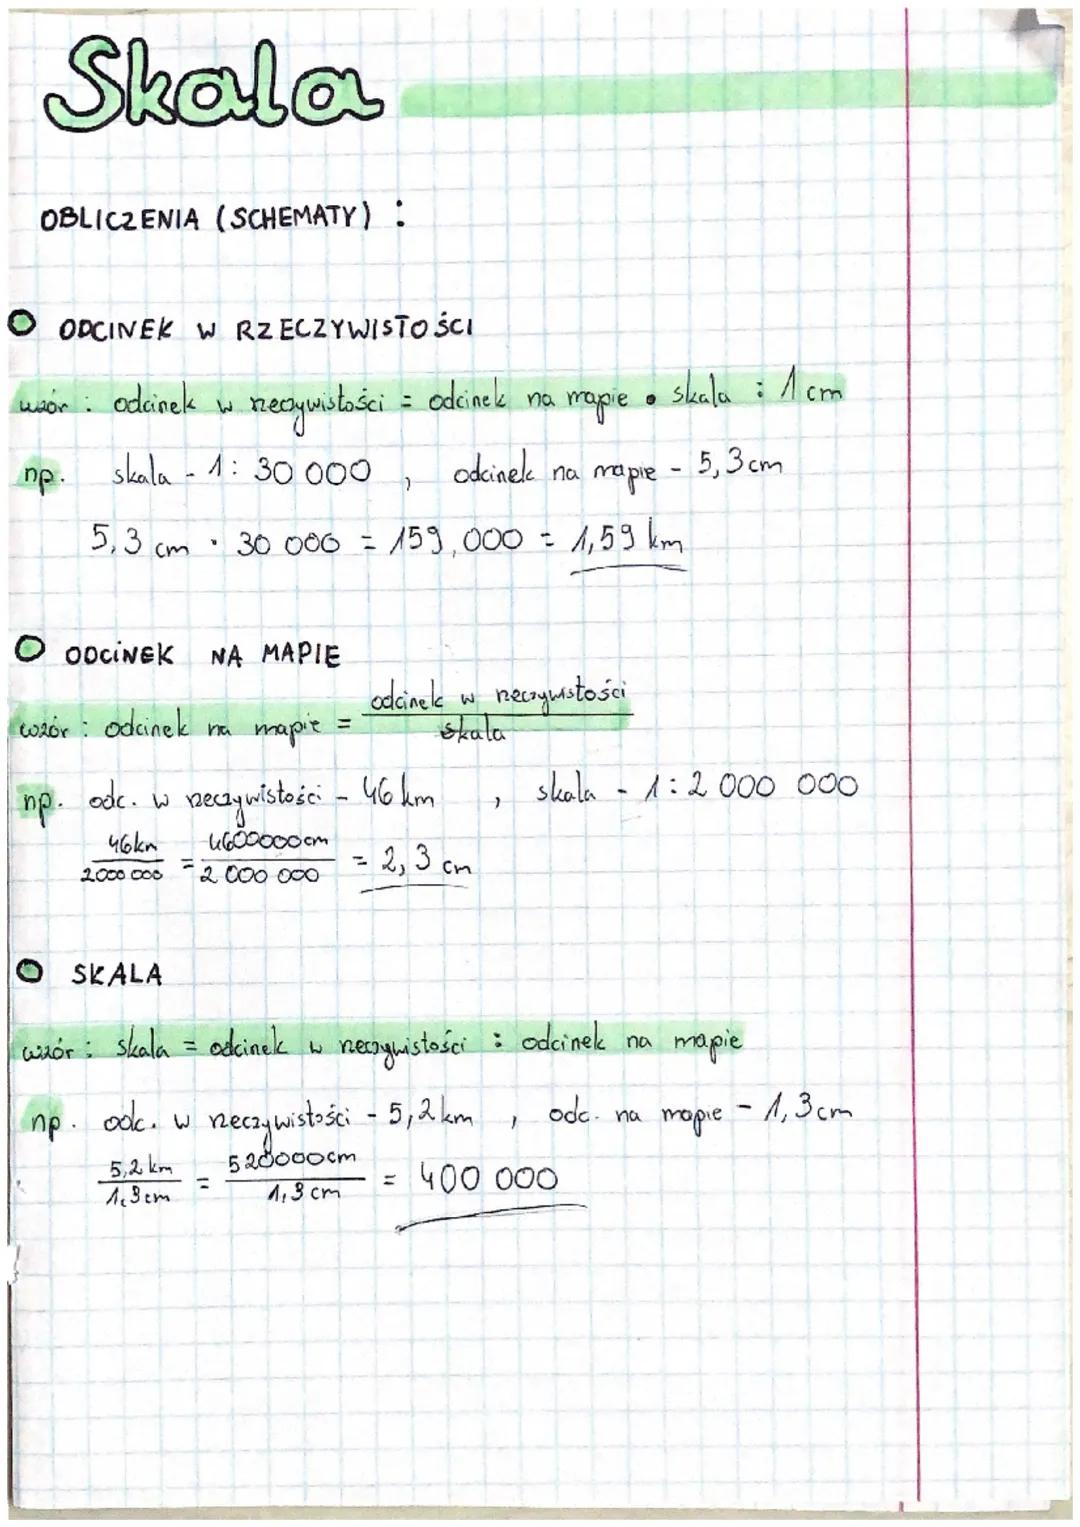 Skala
OBLICZENIA (SCHEMATY) :
ODCINEK W RZECZYWISTOŚCI
wzór : odcinek w rzeczywistości = odcinek na mapie • skala : 1 cm
np. skala - 1: 30 000 , odcinek na mapie - 5,3 cm
5,3 cm · 30 000 = 159,000 = 1,59 km
ODCINEK NA MAPIE
wzór : odcinek na mapie = odcinek w rzeczywistości / skala
np. odc. w rzeczywistości - 46 km , skala - 1 : 2 000 000
46km / 2000 000 = 4600000cm / 2 000 000 = 2,3 cm
SKALA
wzór : skala = odcinek w rzeczywistości : odcinek na mapie
np. odc. w rzeczywistości - 5,2 km , odc. na mapie - 1,3 cm
5,2 km / 1,3 cm = 520000cm / 1,3 cm = 400 000